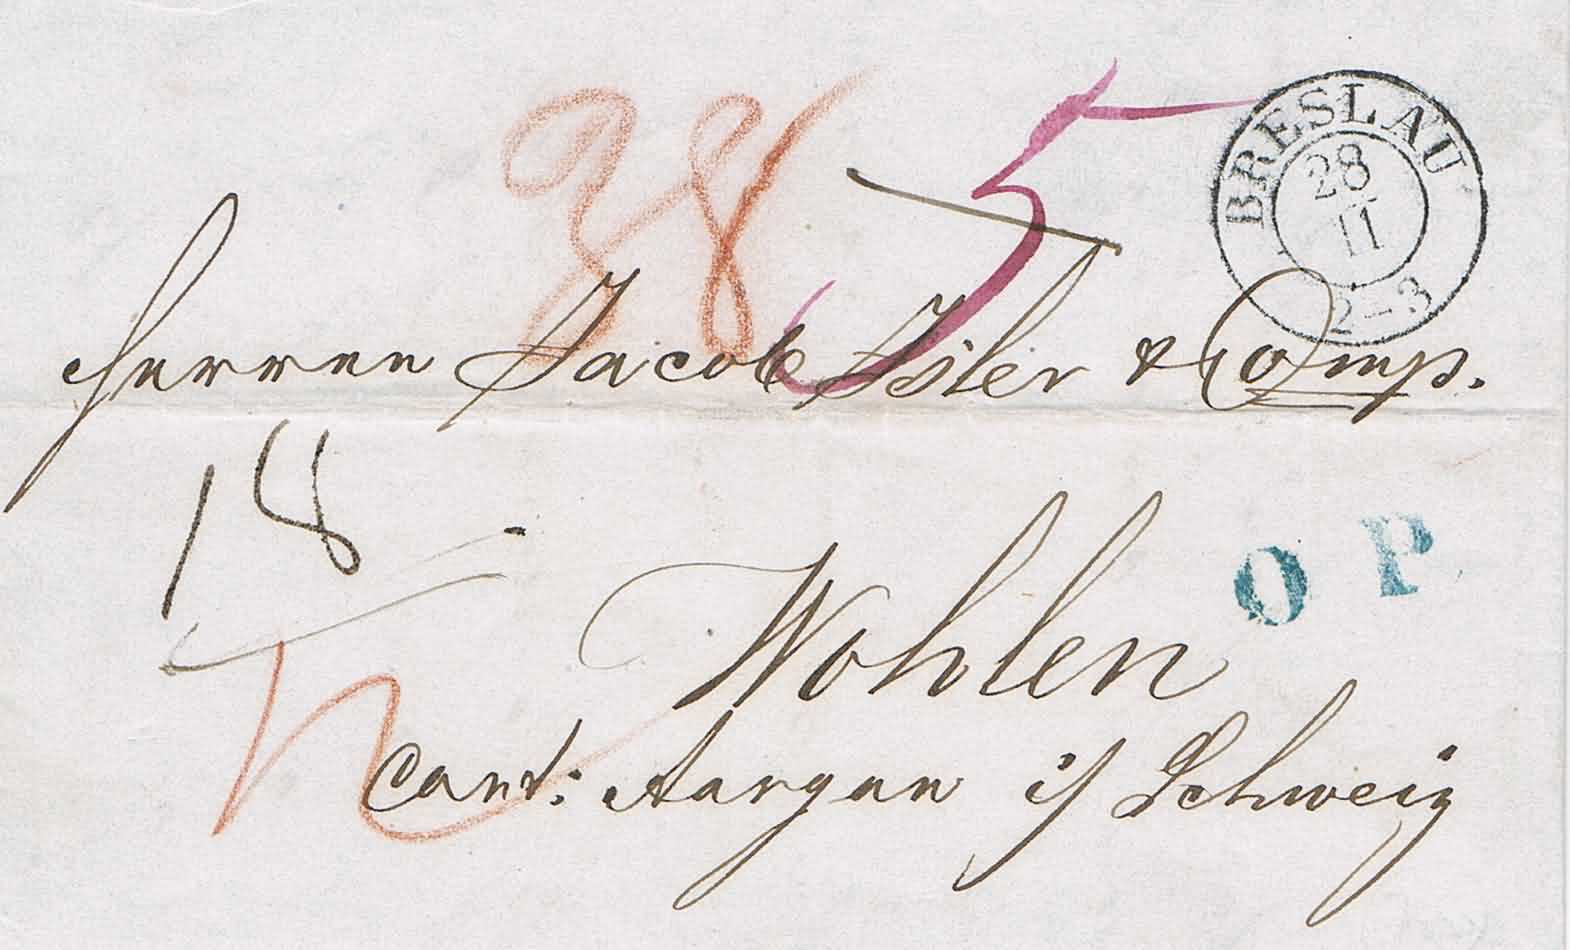 38 5
BRESLAU
28
11
2–3
Herren Jacob Isler & Comp.
18
O P.
Wohlen
Cant: Aargau i/ Schweiz